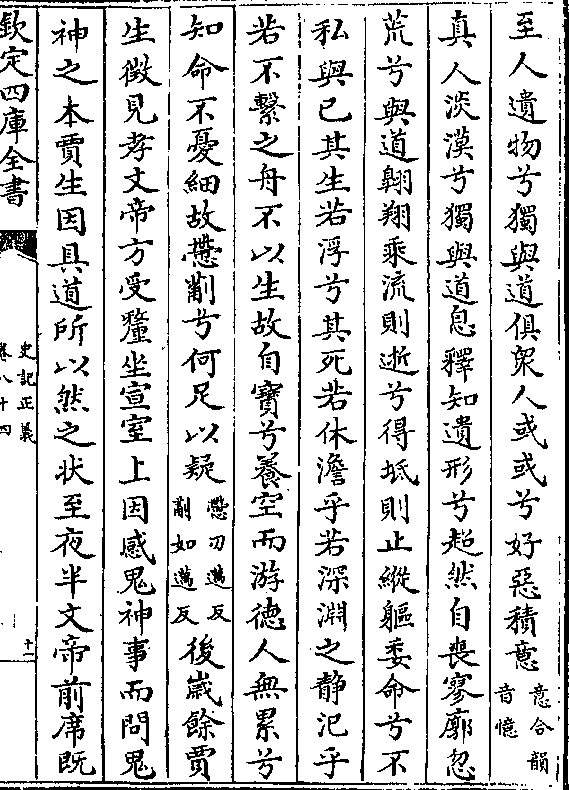 至人遺物兮獨與道俱衆人或或兮好惡積意意合韻音憶
真人淡漠兮獨與道息釋知遺形兮超然自喪寥廓忽
荒兮與道翺翔乘流則逝兮得坻則止縱軀委命兮不
私與已其生若浮兮其死若休澹乎若深淵之静氾乎
若不繫之舟不以生故自寶兮養空而游德人無累兮
知命不憂細故慸葪兮何足以疑慸刃邁反葪如邁反後嵗餘賈
生徵見孝文帝方受釐坐宣室上因感鬼神事而問鬼
神之本賈生因具道所以然之狀至夜半文帝前席既
欽定四庫全書
史記正義
卷八十四
十一